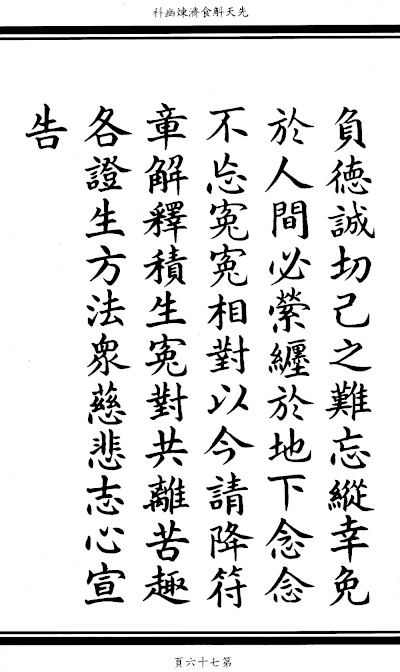 先天斛食濟煉幽科
負德誠切己之難忘縱幸免
於人間必縈纏於地下念念
不忘寃寃相對以今請降符
章解釋積生寃對共離苦趣
各證生方法衆慈悲志心宣
告
第七十六頁